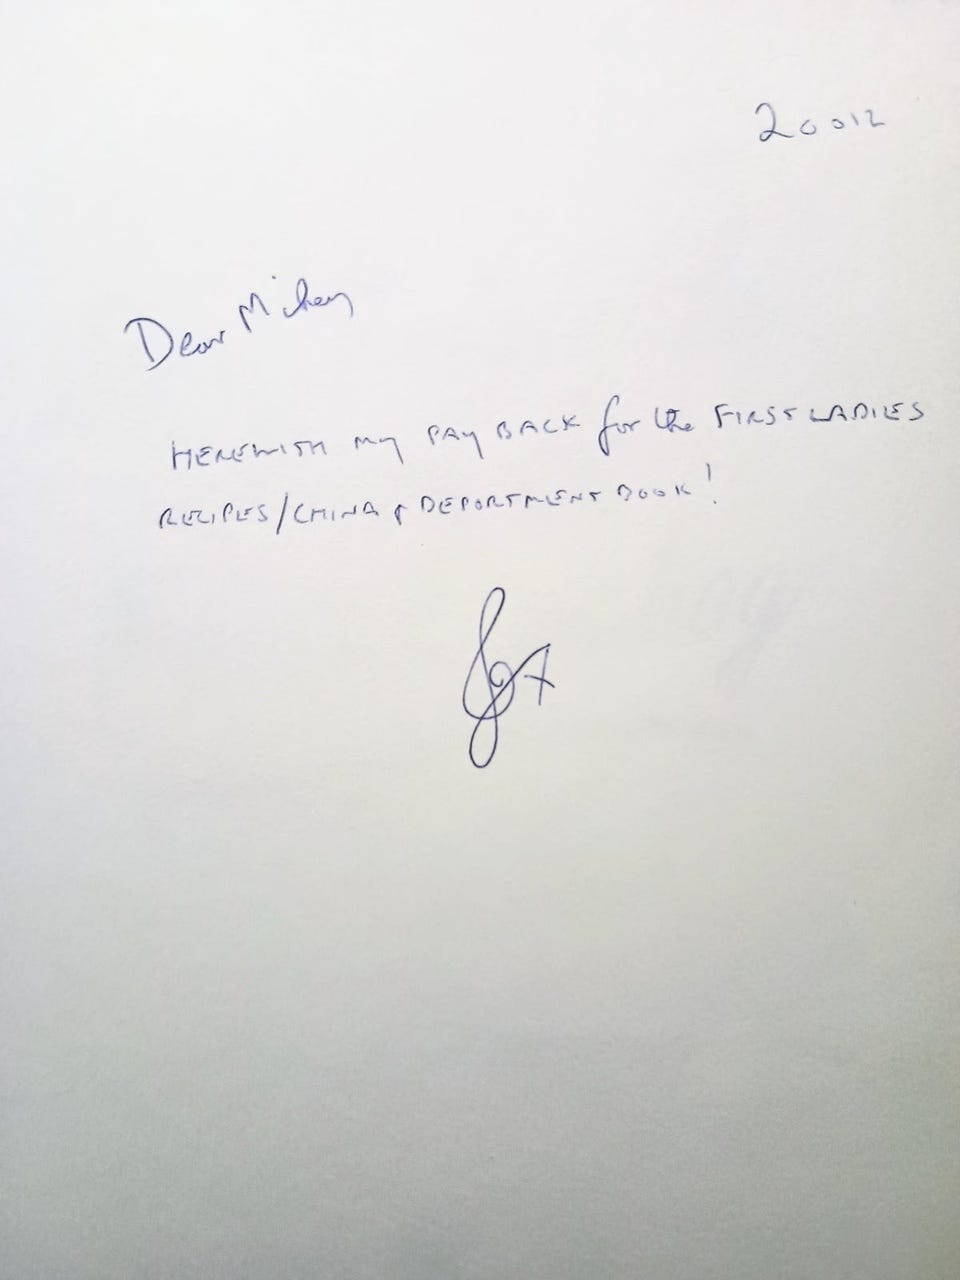 20012
Dear Mikey
HEREWITH my PAY BACK for the FIRST LADIES
RECIPES/CHINA & DEPORTMENT BOOK!